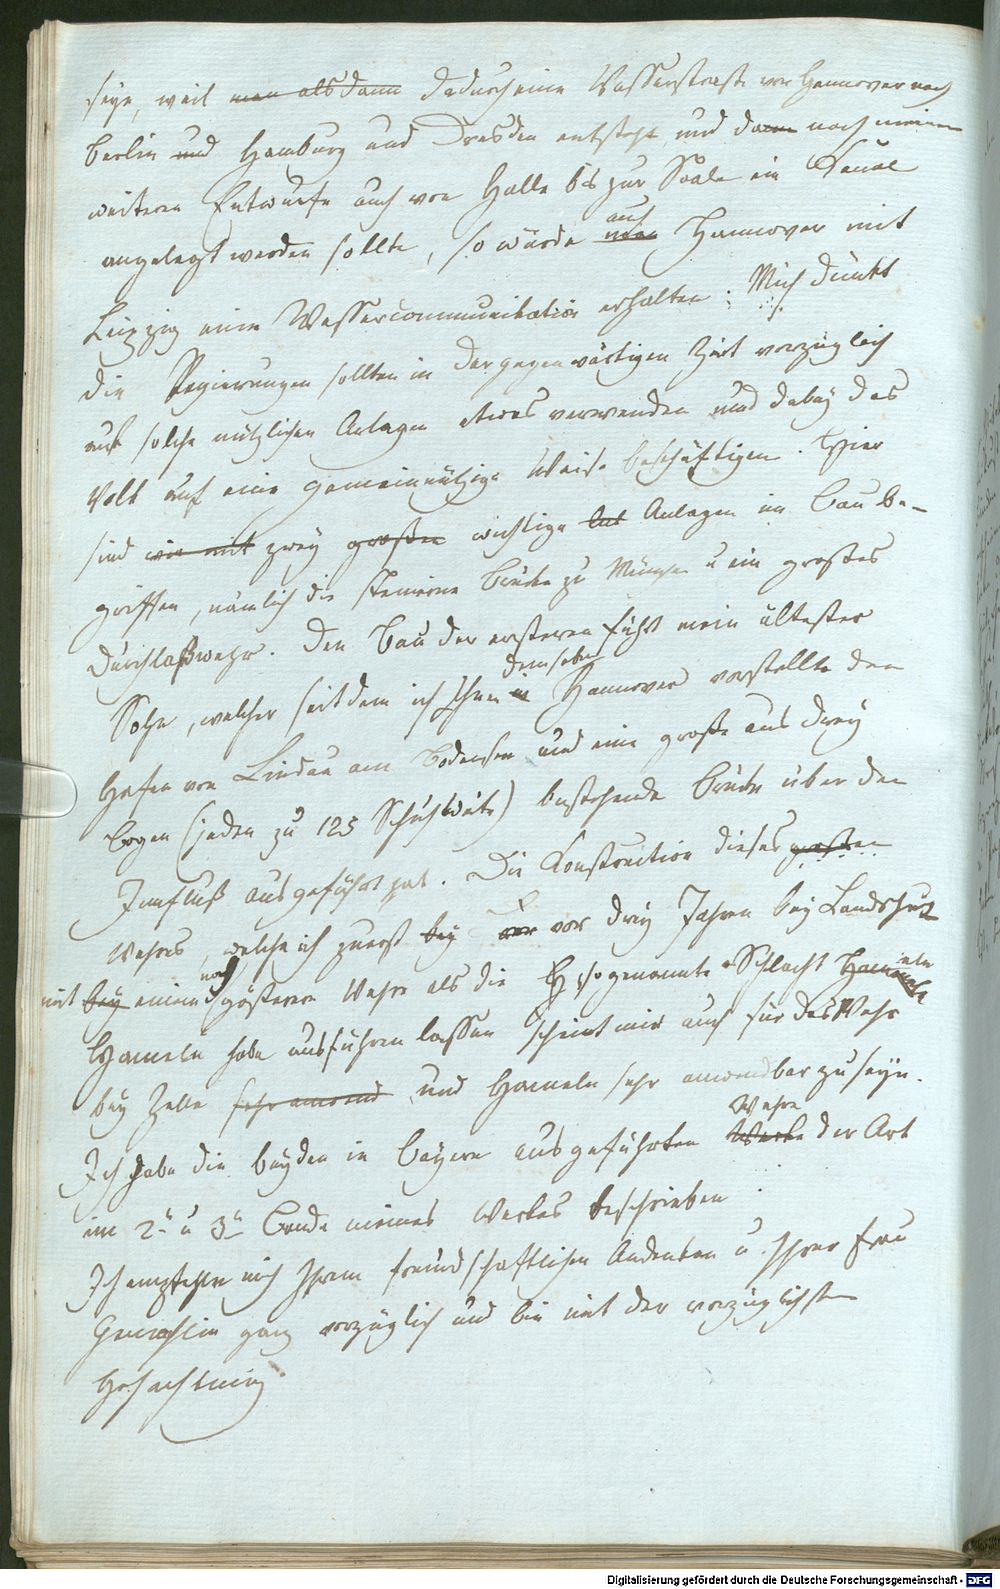 seye, weil man alsdann dadurch eine Wasserstrasse von Hannover nach
Berlin und Hamburg und Dresden entsteht, und dann nach meinem
weiteren Entwurfe auch von Halle bis zur Saale ein Canal
angelegt werden sollte, so würde man auch Hannover mit
Leipzig eine Wassercommunikation erhalten. Mich dünkt
die Regierungen sollten in der gegenwärtigen Zeit vorzüglich
auf solche nützlichen Anlagen etwas verwenden und dabey das
Volk auf eine gemeinnützige Weise beschäftigen. Hier
sind wir mit zwey großen wichtige Anlagen im Bau be-
griffen, nämlich die steinerne Brücke zu u ein großes
Durchlaßwehr. Den Bau der ersteren führt mein ältester
Sohn, welcher seitdem ich Ihnen in denselben Hannover vorstellte den
Hafen von Lindau am Bodensee und eine große aus drey
Bogen (jeden zu 125 Schuh weite) bestehende Brücke über den
Innfluß ausgeführt hat. Die Construction dieses großen
Wehres, welche ich zuerst bey vor vor drey Jahren bey Landshut
mit bey einem noch größeren Wehre als die sogenannte Schlacht
Hameln habe ausführen lassen scheint mir auch für das Wehr
bey Zelle sehr anwend und Hameln sehr anwendbar zu seyn.
Ich habe die beyden in Bayern ausgeführten Werke Wehre der Art
im 2n u 3n Bande meines Werkes beschrieben.
Ich empfehle mich Ihrem freundschaftlichen Andenken u. Ihrer Frau
Gemahlin ganz vorzüglich und bin mit der vorzüglichsten
Hochachtung
Digitalisierung gefördert durch die Deutsche Forschungsgemeinschaft - DFG